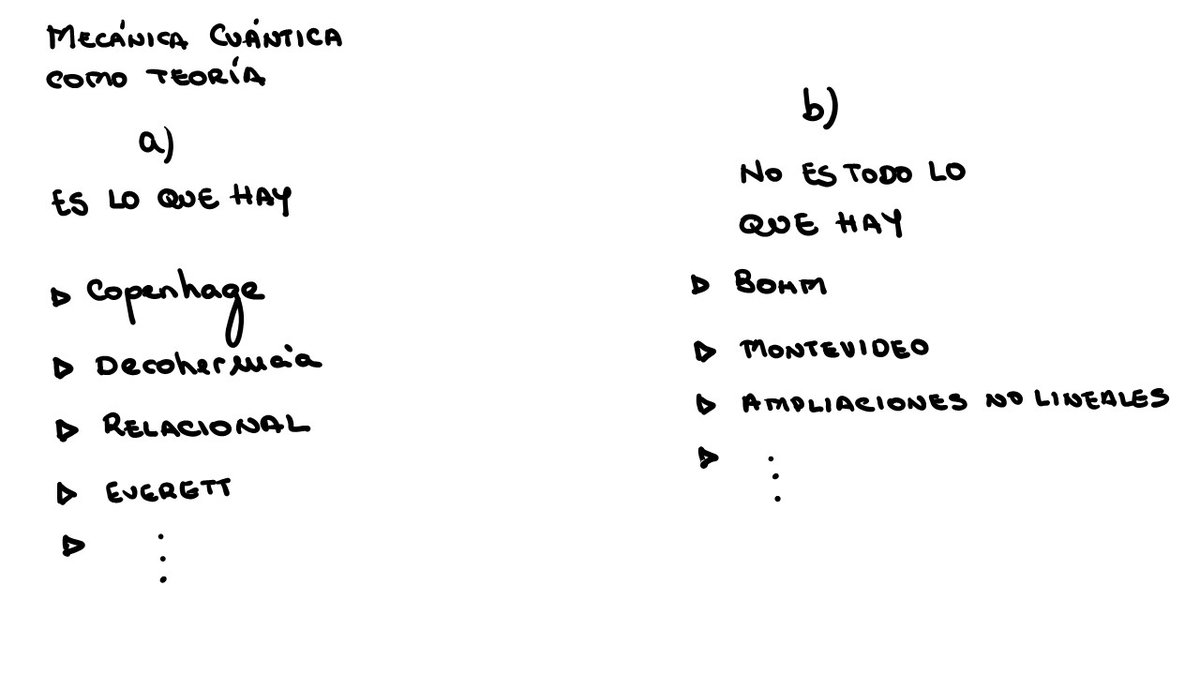 MECÁNICA CUÁNTICA
COMO TEORÍA
a)
ES LO QUE HAY
▷ Copenhage
▷ Decoherencia
▷ RELACIONAL
▷ EVERETT
▷ ⋮
b)
NO ES TODO LO
QUE HAY
▷ BOHM
▷ MONTEVIDEO
▷ AMPLIACIONES NO LINEALES
▷ ⋮